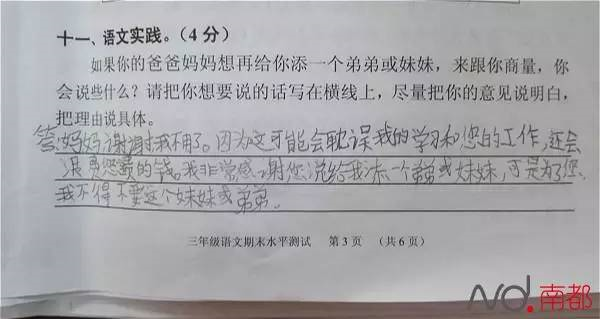 十一、语文实践。（4分）
如果你的爸爸妈妈想再给你添一个弟弟或妹妹，来跟你商量，你
会说些什么？请把你想要说的话写在横线上，尽量把你的意见说明白，
把理由说具体。
答:妈妈谢谢我不用了。因为这可能会耽误我的学习和您的工作，还会
浪费您的钱。我非常感谢您说给我添一个弟弟或妹妹，可是为了您，
我不得不要这个妹妹或弟弟。
三年级语文期末水平测试 第3页 （共6页）
nd.南都